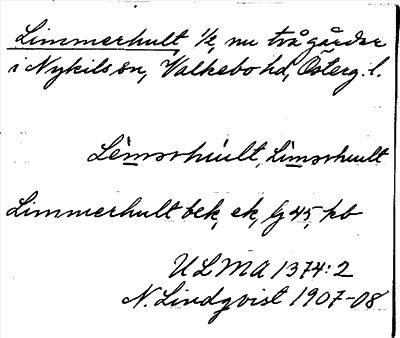 Limmerhult, 1/2, nu två gårdar
i Nykils sn, Valkebo hd, Österg. l.
Lìmərhúlt, Lìmərhult
Limmerhult bek, ek, Gg 45, kb
ULMA 1374:2
N. Lindqvist 1907-08